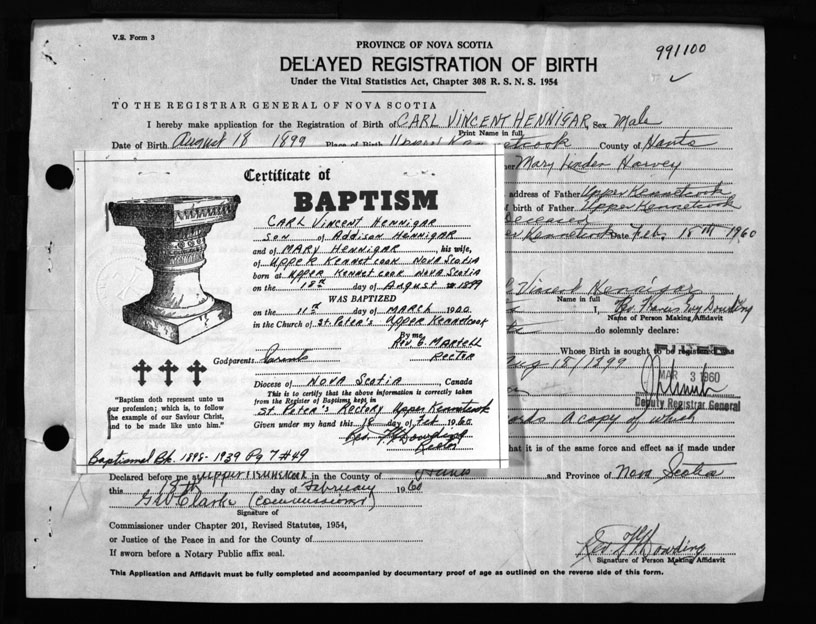 V.S. Form 3
PROVINCE OF NOVA SCOTIA
991100
DELAYED REGISTRATION OF BIRTH
Under the Vital Statistics Act, Chapter 308 R. S. N. S. 1954
TO THE REGISTRAR GENERAL OF NOVA SCOTIA
I hereby make application for the Registration of Birth of CARL VINCENT HENNIGAR Sex Male
Print Name in full
Date of Birth August 18 1899 Place of Birth Upper Kennetcook County of Hants
Mary Harvey
address of Father Upper Kennetcook
of birth of Father Upper Kennetcook
Deceased
Kennetcook Date Feb. 18th 1960
Certificate of
BAPTISM
CARL VINCENT HENNIGAR
SON of ADDISON HENNIGAR
and of MARY HENNIGAR, his wife,
of UPPER KENNETCOOK NOVA SCOTIA
born at UPPER KENNETCOOK NOVA SCOTIA
on the 18th day of AUGUST 1899
WAS BAPTIZED
on the 11th day of MARCH 1900
in the Church of ST. PETER'S UPPER KENNETCOOK
By me
REV G. MARTELL
RECTOR
Godparents
Diocese of NOVA SCOTIA Canada
This is to certify that the above information is correctly taken
from the Register of Baptisms kept in
ST. PETER'S RECTORY UPPER KENNETCOOK
Given under my hand this day of Feb 1960
Rev. Dowding
Rector
"Baptism doth represent unto us
our profession; which is, to follow
the example of our Saviour Christ,
and to be made like unto him."
Baptismal Bk. 1898-1939 Pg 7 #49
Vincent Hennigar
Name in full
I, Rev. Francis Guy Dowding
Name of Person Making Affidavit
do solemnly declare:
Whose Birth is sought to be registered was
Aug 18/1899
MAR 3 1960
Deputy Registrar General
a copy of which
that it is of the same force and effect as if made under
Declared before me at in the County of Hants and Province of Nova Scotia
this day of February 1960
Clarke (Commissioner)
Signature of
Commissioner under Chapter 201, Revised Statutes, 1954,
or Justice of the Peace in and for the County of
If sworn before a Notary Public affix seal.
Rev. Dowding
Signature of Person Making Affidavit
This Application and Affidavit must be fully completed and accompanied by documentary proof of age as outlined on the reverse side of this form.